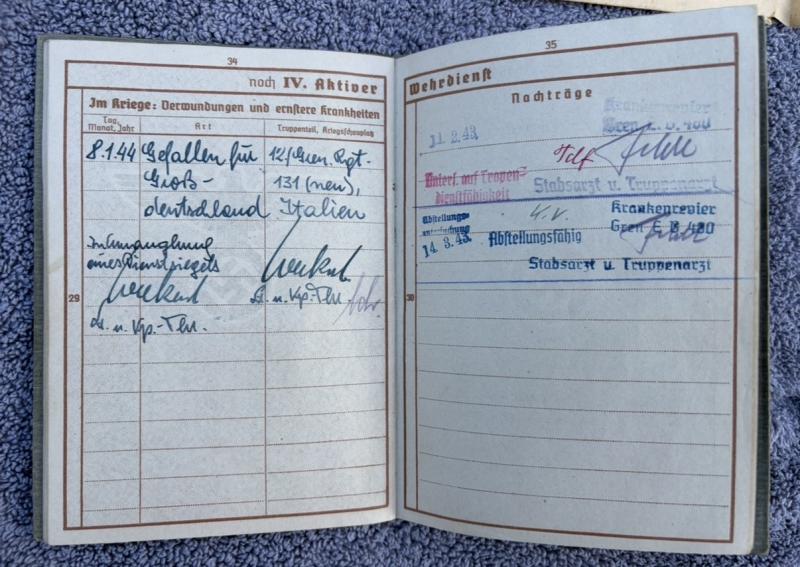 34
noch IV. Aktiver
Im Kriege: Verwundungen und ernstere Krankheiten
Tag, Monat, Jahr
Art
Truppenteil, Kriegsschauplatz
8.1.44 Gefallen für 12/Gren. Rgt.
Groß- 131 (neu),
deutschland Italien
In Ermanglung
eines Dienstsiegels
Lt. u. Kp.-Fhr.
Lt. u. Kp.-Fhr.
29
35
Wehrdienst
Nachträge
11.2.43
Krankenrevier
Gren. E. B. 480
Tdf
Unters. auf Tropen-
dienstfähigkeit
Stabsarzt u. Truppenarzt
Abstellungs-
untersuchung
14. 3. 43.
k.v.
Abstellungsfähig
Krankenrevier
Gren E B 480
Stabsarzt u. Truppenarzt
30